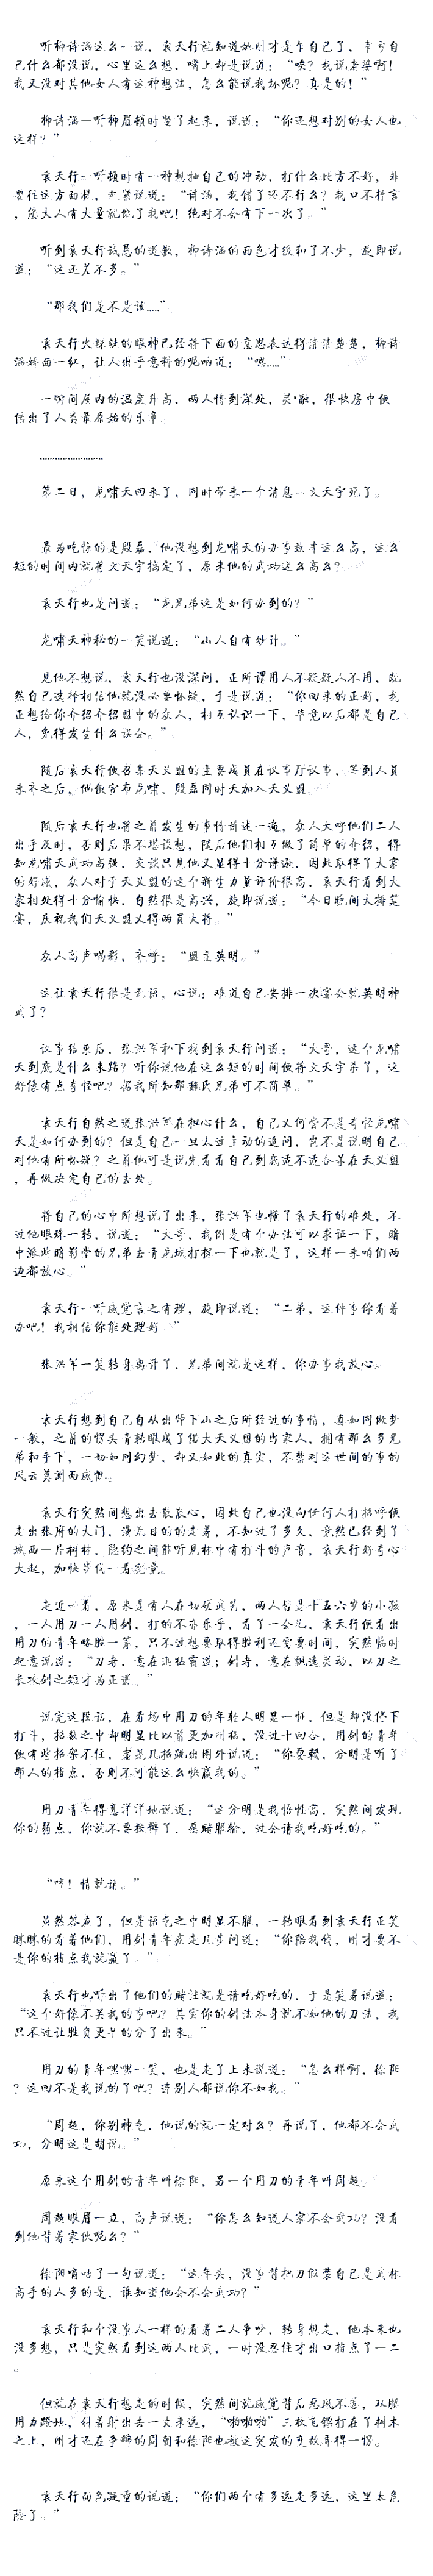 听柳诗涵这么一说，袁天行就知道她刚才是乍自己了，幸亏自
己什么都没说，心里这么想，嘴上却是说道：“唉？我说老婆啊！
我又没对其他女人有这种想法，怎么能说我坏呢？真是的！”
柳诗涵一听柳眉顿时竖了起来，说道：“你还想对别的女人也
这样？”
袁天行一听顿时有一种想抽自己的冲动，打什么比方不好，非
要往这方面提，赶紧说道：“诗涵，我错了还不行么？我口不择言
，您大人有大量就饶了我吧！绝对不会有下一次了。”
听到袁天行诚恳的道歉，柳诗涵的面色才缓和了不少，旋即说
道：“这还差不多。”
“那我们是不是该……”
袁天行火辣辣的眼神已经将下面的意思表达得清清楚楚，柳诗
涵娇面一红，让人出乎意料的呢喃道：“嗯……”
一瞬间屋内的温度升高，两人情到深处，灵*融，很快房中便
传出了人类最原始的乐章。
……………………
第二日，龙啸天回来了，同时带来一个消息──文天宇死了。
最为吃惊的是段磊，他没想到龙啸天的办事效率这么高，这么
短的时间内就将文天宇搞定了，原来他的武功这么高么？
袁天行也是问道：“龙兄弟这是如何办到的？”
龙啸天神秘的一笑说道：“山人自有妙计。”
见他不想说，袁天行也没深问，正所谓用人不疑疑人不用，既
然自己选择相信他就没必要怀疑，于是说道：“你回来的正好，我
正想给你介绍介绍盟中的众人，相互认识一下，毕竟以后都是自己
人，免得发生什么误会。”
随后袁天行便召集天义盟的主要成员在议事厅议事，等到人员
来齐之后，他便宣布龙啸、段磊同时天加入天义盟。
随后袁天行也将之前发生的事情讲述一遍，众人大呼他们二人
出手及时，否则后果不堪设想，随后他们相互做了简单的介绍，得
知龙啸天武功高强，交谈只见他又显得十分谦逊，因此取得了大家
的好感，众人对于天义盟的这个新生力量评价很高，袁天行看到大
家相处得十分愉快，自然很是高兴，旋即说道：“今日晚间大排筵
宴，庆祝我们天义盟又得两员大将。”
众人高声喝彩，齐呼：“盟主英明。”
这让袁天行很是无语，心说：难道自己安排一次宴会就英明神
武了？
议事结束后，张洪军私下找到袁天行问道：“大哥，这个龙啸
天到底是什么来路？听你说他在这么短的时间便将文天宇杀了，这
好像有点奇怪吧？据我所知那魏氏兄弟可不简单。”
袁天行自然之道张洪军在担心什么，自己又何尝不是奇怪龙啸
天是如何办到的？但是自己一旦太过主动的追问，岂不是说明自己
对他有所怀疑？之前他可是说先看看自己到底适不适合呆在天义盟
，再做决定自己的去处。
将自己的心中所想说了出来，张洪军也懂了袁天行的难处，不
过他眼珠一转，说道：“大哥，我倒是有个办法可以求证一下，暗
中派些暗影堂的兄弟去青龙城打探一下也就是了，这样一来咱们两
边都放心。”
袁天行一听感觉言之有理，旋即说道：“二弟，这件事你看着
办吧！我相信你能处理好。”
张洪军一笑转身离开了，兄弟间就是这样，你办事我放心。
袁天行想到自己自从出师下山之后所经过的事情，真如同做梦
一般，之前的愣头青转眼成了偌大天义盟的当家人，拥有那么多兄
弟和手下，一切如同幻梦，却又如此的真实，不禁对这世间的事的
风云莫测而感慨。
袁天行突然间想出去散散心，因此自己也没向任何人打招呼便
走出张府的大门，漫无目的的走着，不知过了多久，竟然已经到了
城西一片树林，隐约之间能听见林中有打斗的声音，袁天行好奇心
大起，加快步伐一看究竟。
走近一看，原来是有人在切磋武艺，两人皆是十五六岁的小孩
，一人用刀一人用剑，打的不亦乐乎，看了一会儿，袁天行便看出
用刀的青年略胜一筹，只不过想要取得胜利还需要时间，突然临时
起意说道：“刀者，意在迅猛霸道；剑者，意在飘逸灵动，以刀之
长攻剑之短才为正道。”
说完这段话，在看场中用刀的年轻人明显一怔，但是却没停下
打斗，招数之中却明显比以前更加刚猛，没过十四合，用剑的青年
便有些招架不住，虚晃几招跳出圈外说道：“你耍赖、分明是听了
那人的指点，否则不可能这么快赢我的。”
用刀青年得意洋洋地说道：“这分明是我悟性高，突然间发现
你的弱点，你就不要狡辩了，愿赌服输，过会请我吃好吃的。”
“哼！情就请。”
虽然答应了，但是语气之中明显不服，一转眼看到袁天行正笑
眯眯的看着他们，用剑青年疾走几步问道：“你陪我钱，刚才要不
是你的指点我就赢了。”
袁天行也听出了他们的赌注就是请吃好吃的，于是笑着说道：
“这个好像不关我的事吧？其实你的剑法本身就不如他的刀法，我
只不过让胜负更早的分了出来。”
用刀的青年嘿嘿一笑，也是走了上来说道：“怎么样啊，徐阳
？这回不是我说的了吧？连别人都说你不如我。”
“周超，你别神气，他说的就一定对么？再说了，他都不会武
功，分明这是胡说。”
原来这个用剑的青年叫徐阳，另一个用刀的青年叫周超。
周超眼眉一立，高声说道：“你怎么知道人家不会武功？没看
到他背着家伙呢么？”
徐阳嘀咕了一句说道：“这年头，没事背把刀假装自己是武林
高手的人多的是，谁知道他会不会武功？”
袁天行和个没事人一样的看着二人争吵，转身想走，他本来也
没多想，只是突然看到这两人比武，一时没忍住才出口指点了一二
。
但就在袁天行想走的时候，突然间就感觉背后恶风不善，双腿
用力蹬地，斜着射出去一丈来远，“啪啪啪”三枚飞镖打在了树木
之上，刚才还在争辩的周朝和徐阳也被这突发的变故弄得一愣。
袁天行面色凝重的说道：“你们两个有多远走多远，这里太危
险了。”